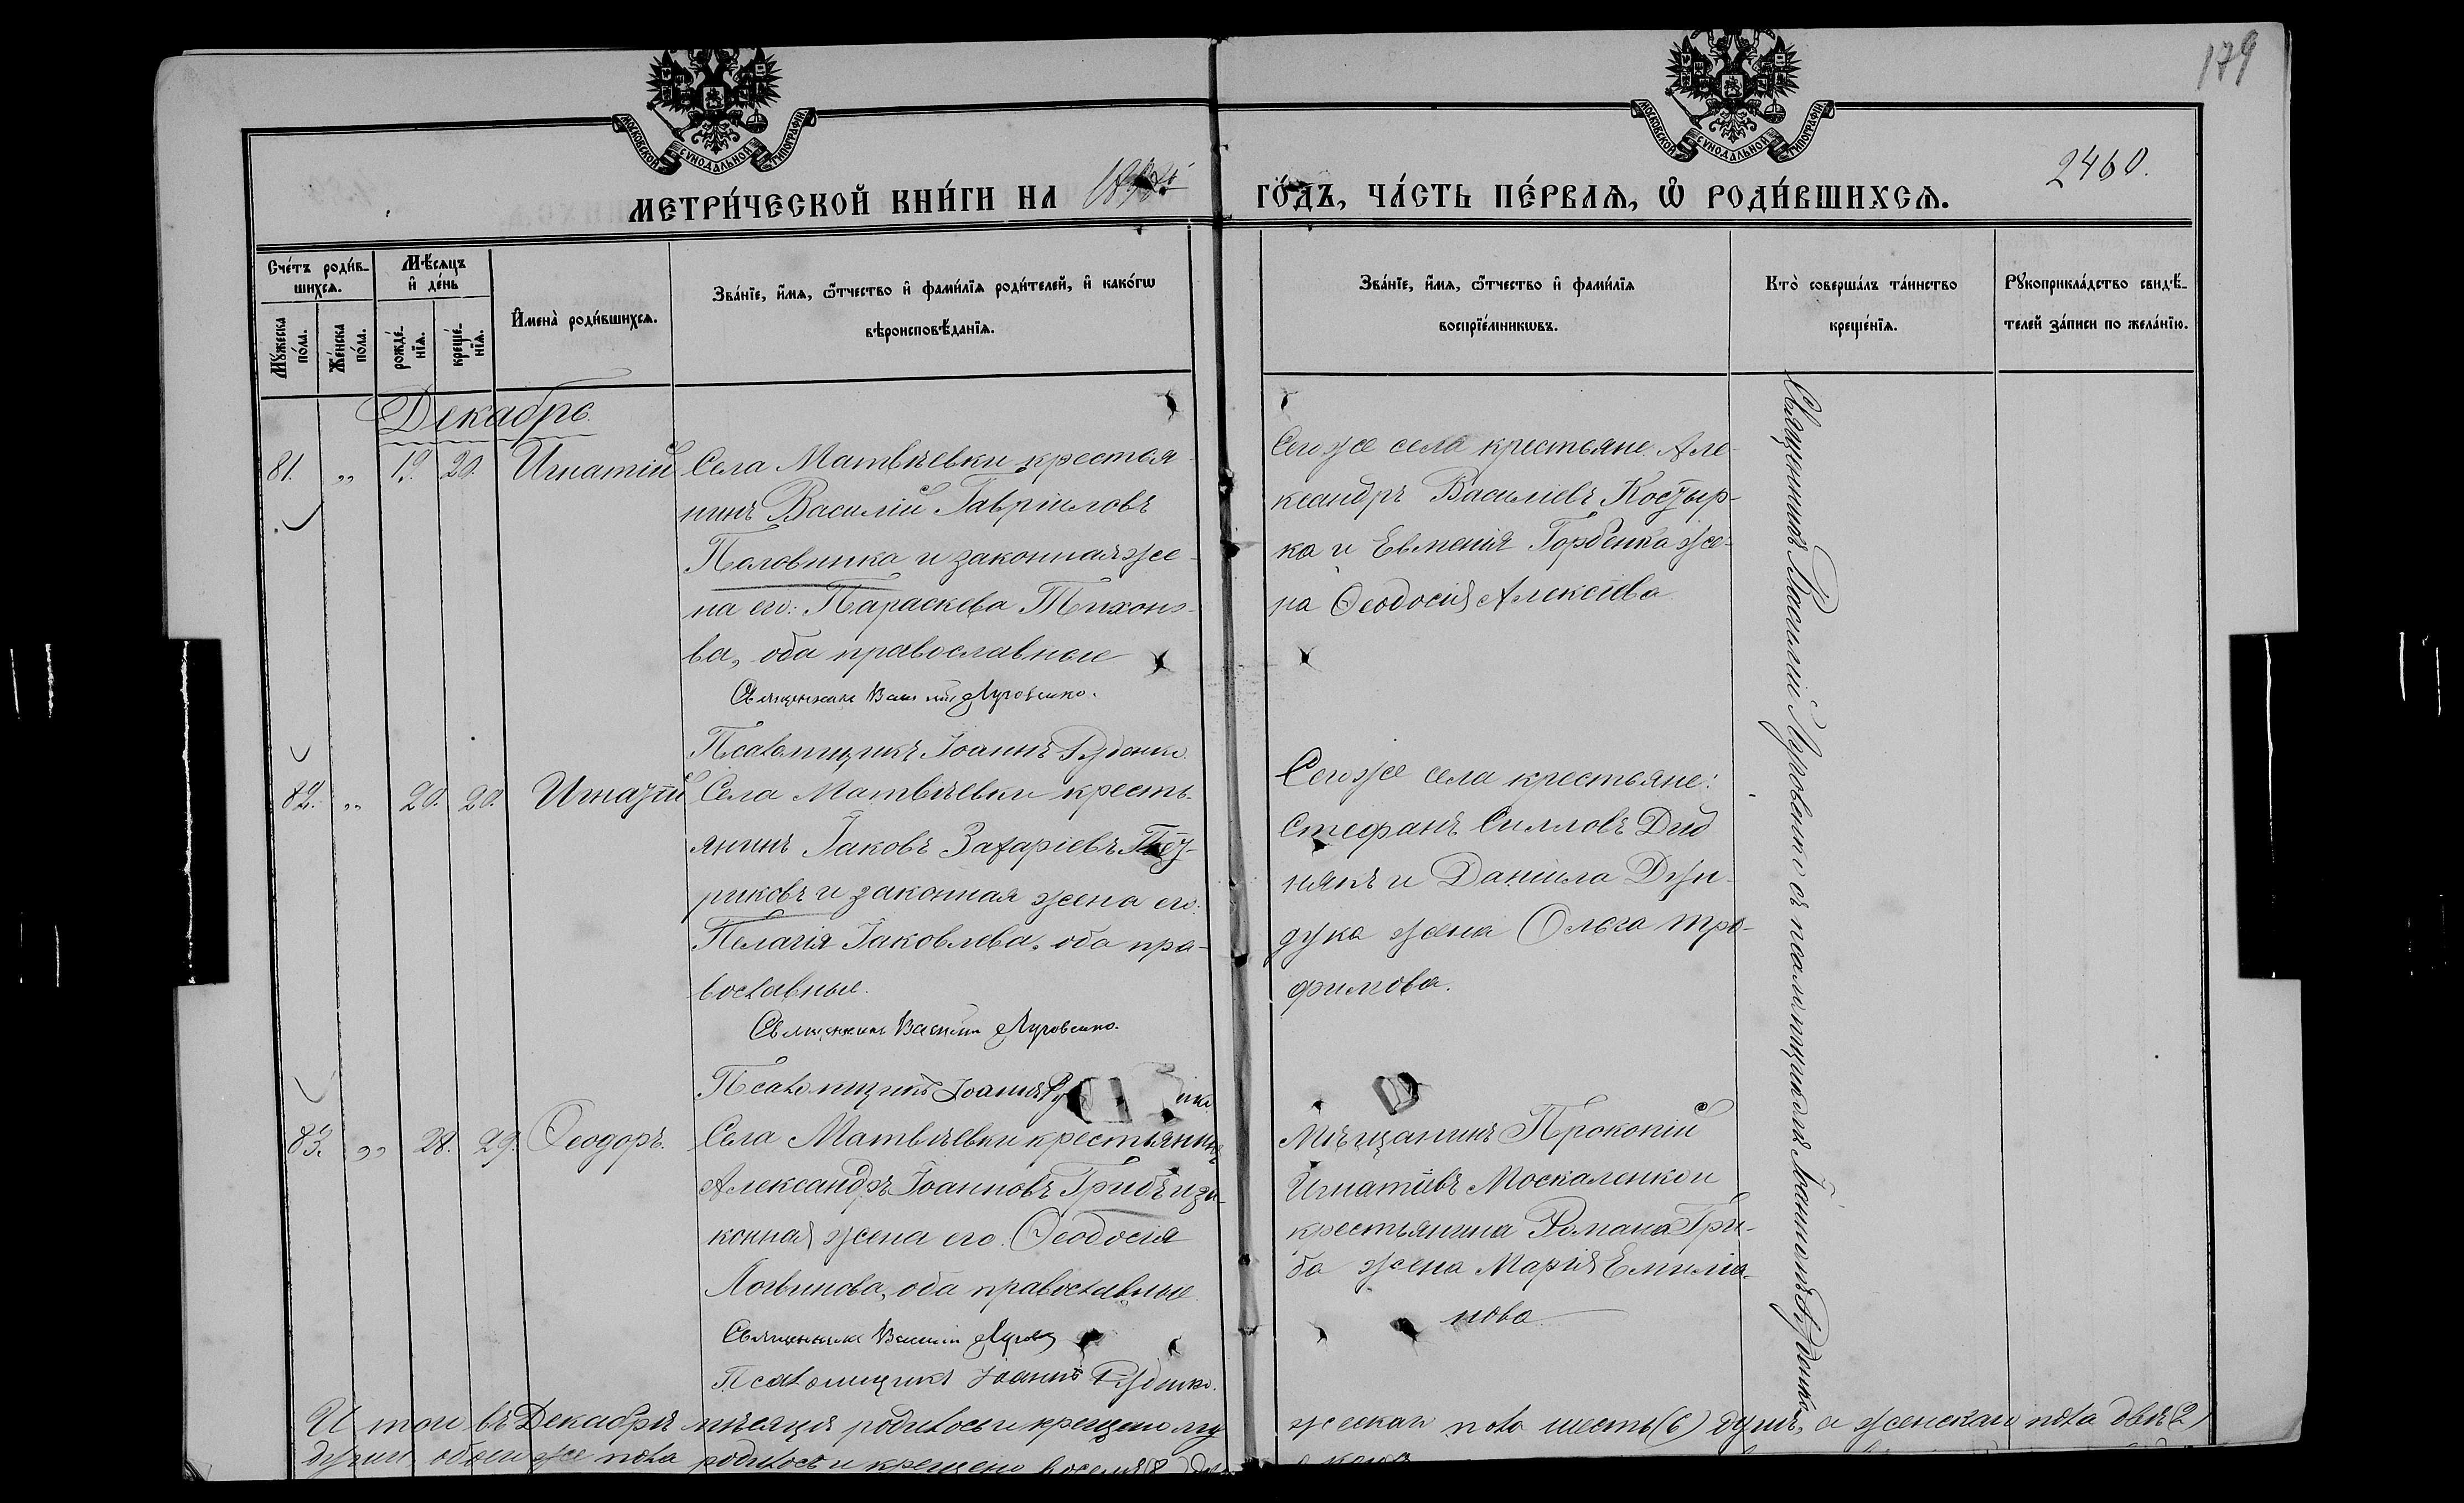 179
МОСКОВСКОЙ СѴНОДАЛЬНОЙ ТИПОГРАФІИ
МОСКОВСКОЙ СѴНОДАЛЬНОЙ ТИПОГРАФІИ
2460.
МЕТРИ́ЧЕСКОЙ КНИ́ГИ НА
ГО́ДЪ, ЧА́СТЬ ПЕ́РВАѦ, Ѽ РОДИ́ВШИХСѦ.
Сче́тъ роди́в-
шихсѧ.
Мꙋ́жеска по́ла.
Же́нска по́ла.
Мѣ́сѧцъ
и҆ де́нь
рожде́-
нїѧ.
креще́-
нїѧ.
И҆мена̀ роди́вшихсѧ.
Зва́нїе, и҆́мѧ, ѻ҆́тчество и҆ фами́лїѧ роди́телей, и҆ како́гѡ
вѣроисповѣ́данїѧ.
Зва́нїе, и҆́мѧ, ѻ҆́тчество и҆ фами́лїѧ
воспрїе́мникѡвъ.
Кто̀ соверша́лъ та́инство
креще́нїѧ.
Рꙋкоприкла́дство свидѣ́-
телей за́писи по жела́нїю.
Декабрь.
81. „ 19. 20. Игнатій
Села Матвѣевки крестья
нинъ Василій Гавріиловъ
Половинка и законная же-
на его: Параскева Тихоно-
ва, оба православные
Священникъ Василій Луговенко.
Псаломщикъ Іоаннъ Руденко.
Сего же села крестьяне Але-
ксандръ Василіевъ Костыр-
ка и Евменія Горбенка же-
на Ѳеодосія Алексіева
82. „ 20. 20. Игнатій
Села Матвѣевки кресть-
янинъ Іаковъ Захаріевъ
риковъ и законная жена его:
Пелагія Іаковлева, оба пра-
вославные.
Священникъ Василій Луговенко.
Псаломщикъ Іоаннъ
Сего же села крестьяне:
Стефанъ Силловъ Дид
някъ и Даніила Дун-
дука жена Ольга Тро-
фимова.
83. „ 28. 29. Ѳеодоръ.
Села Матвѣевки крестьянинъ
Александръ Іоанновъ Грибъ и за-
конная жена его Ѳеодосія
Логвинова, оба православные.
Священникъ Василій
Псаломщикъ Іоаннъ Руденко.
Мѣщанинъ Прокопій
Игнатіевъ Москаленко и
крестьянина Романа Гри-
ба жена Марія Емилiа-
нова
Священникъ Василій Луговенко съ псаломщикомъ Іоанномъ Руденко
Итого въ Декабрѣ мѣсяцѣ родилось и крещено му
жескаго пола шесть (6) душъ, а женскаго пола двѣ (2)
души, обоего же пола родилось и крещено восемь (8)